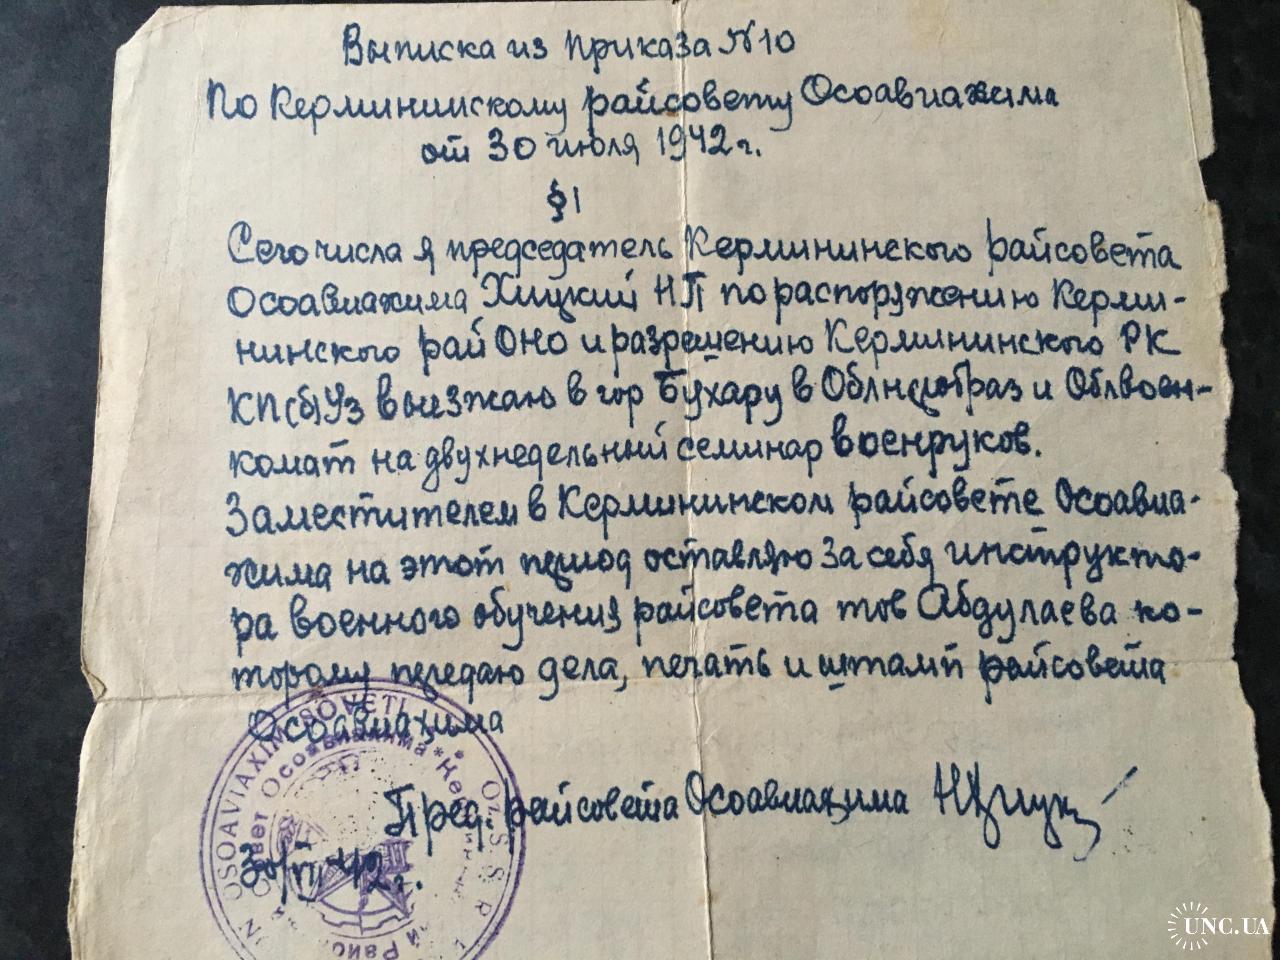 Выписка из приказа №10
По Кермининскому райсовету Осоавиахима
от 30 июля 1942 г.
§1
Сего числа я председатель Кермининского райсовета
Осоавиахима Хицкий НП по распоряжению Керми-
нинского рай ОНО и разрешению Керминнинского РК
КП(б)Уз выезжаю в гор Бухару в и Облвоен-
комат на двухнедельный семинар военруков.
Заместителем в Керминнинском райсовете Осоавиа-
хима на этот период оставляю за себя инструкто-
ра военного обучения райсовета тов Абдулаева ко-
торому передаю дела, печать и штамп райсовета
Осоавиахима
Пред. райсовета Осоавиахима
30/VII 42 г.
OSOAVIAXIM SOVETI
Oz. S S R
Совет Осоавиахима
UNC.UA